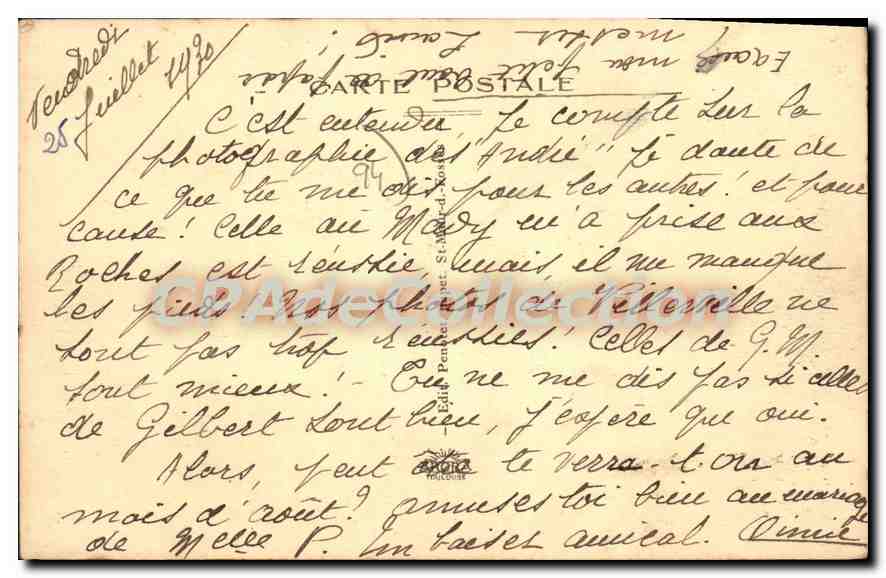 Vendredi
25 Juillet 1930
CARTE POSTALE
C'est entendu, je compte sur la
photographie des "André" je doute de
ce que tu me dis pour les autres! et pour
cause! Celle où Mady m'a prise aux
Roches est réussie, mais il me manque
les pieds! Nos photos de Villerville ne
sont pas trop réussies! Celles de G. M.
sont mieux! - Tu ne me dis pas si celles
de Gilbert sont bien, j'espère que oui.
Alors, peut être te verra-t-on au
mois d'août? Amuses toi bien au mariage
de Melle P. Un baiser amical.
94
Edit. St-Maur-d.-Fossés
TOULOUSE
CPAdeCollection